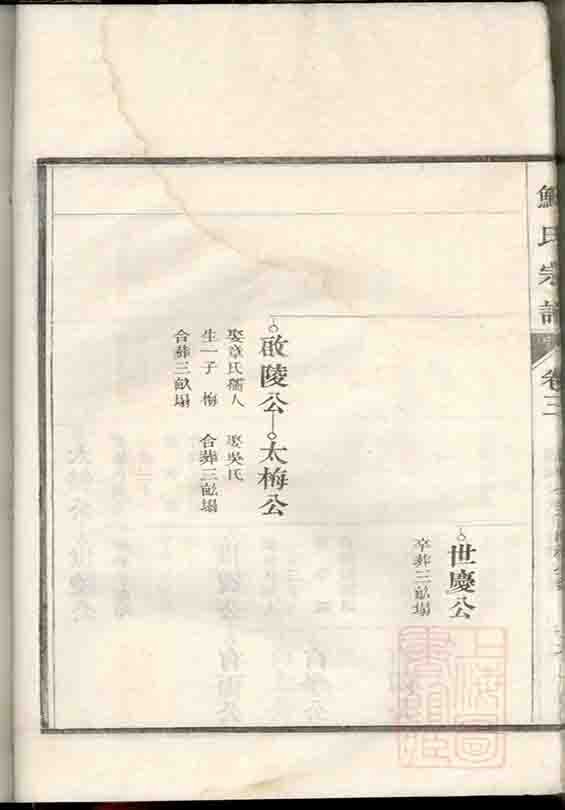 氏宗譜
卷三
世慶公
卒葬三畝塌
敢陵公 太梅公
娶章氏孺人 娶吳氏
生一子 梅 合葬三畝塌
合葬三畝塌
上海圖書館